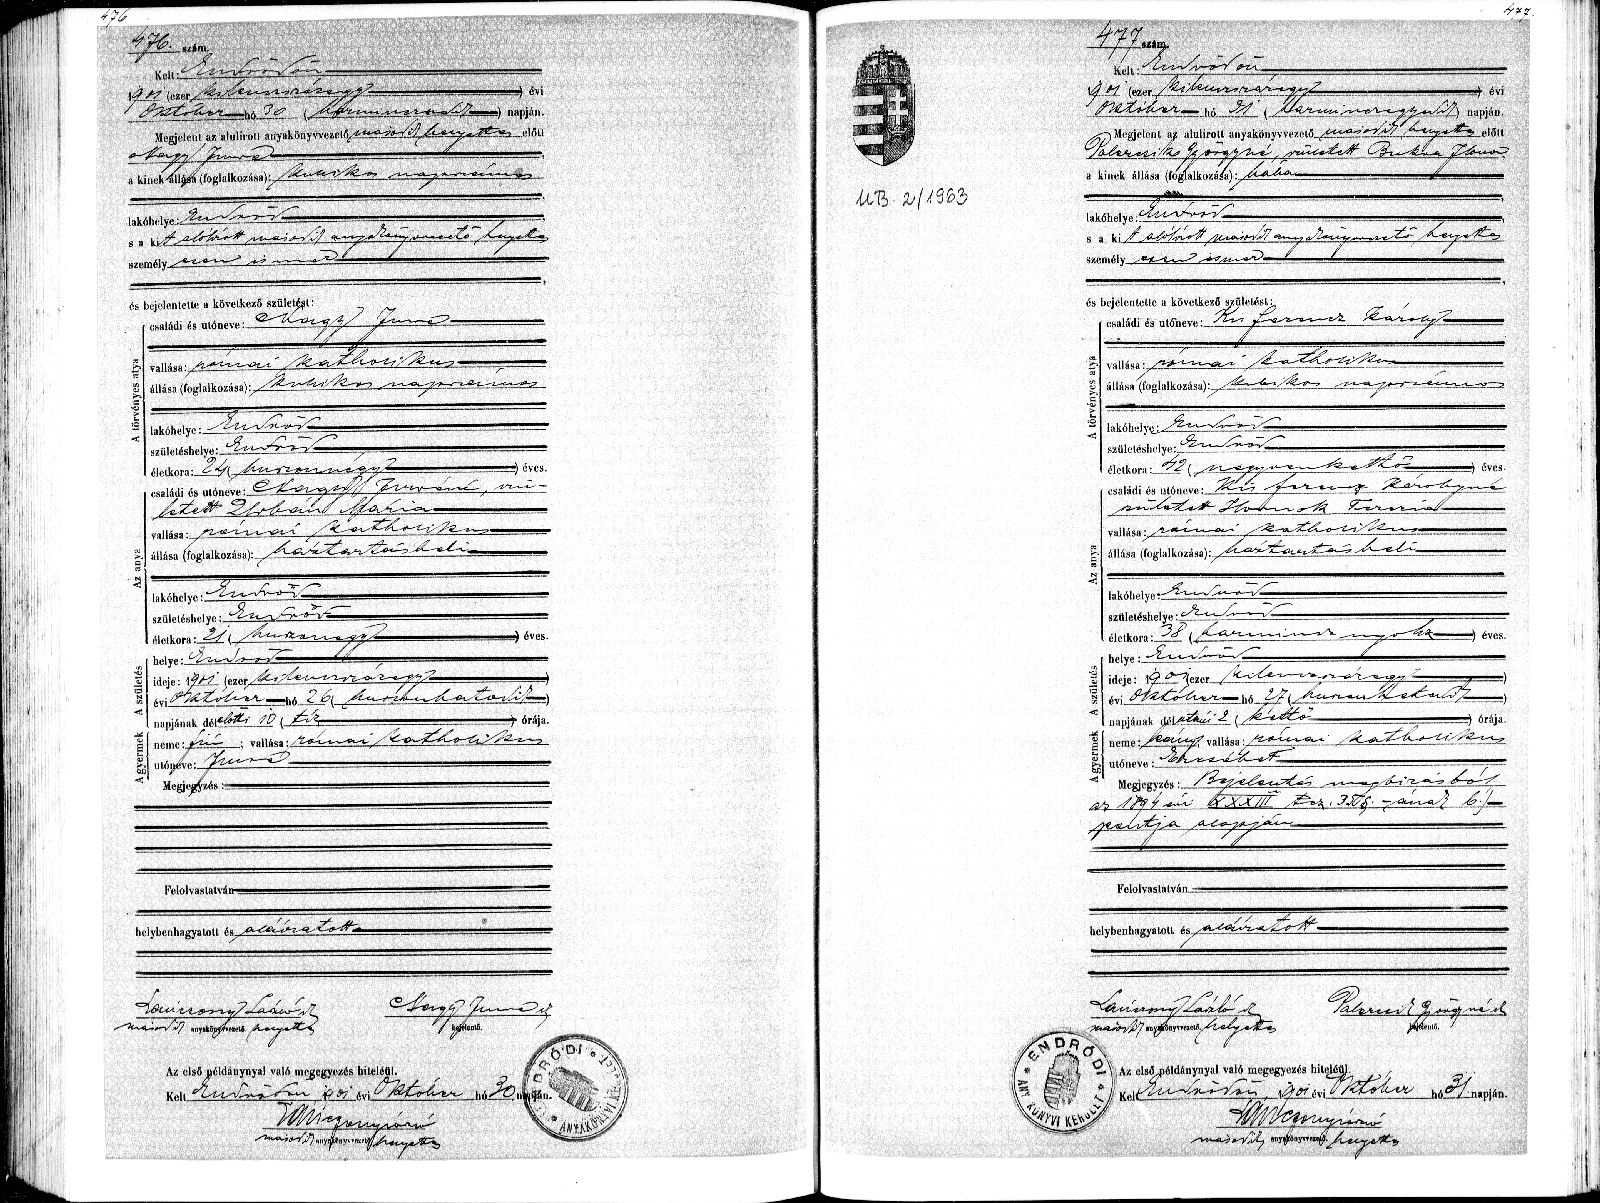 476
476. szám.
Kelt: Endrődön
1901 (ezer kilenczszázegy) évi
Október hó 30 (harminczadik) napján.
Megjelent az alulirott anyakönyvvezető második helyettes előtt
Nagy Imre
a kinek állása (foglalkozása): kubikos napszámos
lakóhelye: Endrőd
s a kit előbbirott második anyakönyvvezető helyettes
személyesen ismer
és bejelentette a következő születést:
A törvényes atya
családi és utóneve: Nagy Imre
vallása: római katholikus
állása (foglalkozása): kubikos napszámos
lakóhelye: Endrőd
születéshelye: Endrőd
életkora: 24 (huszonnégy) éves.
Az anya
családi és utóneve: Nagy Imréné, szü-
letett Mária
vallása: római katholikus
állása (foglalkozása): háztartásbeli
lakóhelye: Endrőd
születéshelye: Endrőd
életkora: 21 (huszonegy) éves.
A születés
helye: Endrőd
ideje: 1901 (ezer kilenczszázegy)
évi Október hó 26 (huszonhatodik)
napjának délelőtti 10 (tíz) órája.
A gyermek
neme: fiú; vallása: római katholikus
utóneve: Imre
Megjegyzés:
Felolvastatván
helybenhagyatott és aláíratott
László
Nagy Imre
második anyakönyvvezető helyettes
bejelentő.
Az első példánynyal való megegyezés hiteléül.
Kelt Endrődön, 1901 évi Október hó 30 napján.
második anyakönyvvezető helyettes
ENDRŐDI
477
477 szám.
Kelt: Endrődön
1901 (ezer kilenczszázegy) évi
Október hó 31 (harminczegyedik) napján.
Megjelent az alulirott anyakönyvvezető második helyettes előtt
Györgyné, született Ilona
a kinek állása (foglalkozása): bába
lakóhelye: Endrőd
s a kit előbbirott második anyakönyvvezető helyettes
személyesen ismer
és bejelentette a következő születést:
A törvényes atya
családi és utóneve: Kis ferencz Károly
vallása: római katholikus
állása (foglalkozása): kubikos napszámos
lakóhelye: Endrőd
születéshelye: Endrőd
életkora: 42 (negyvenkettő) éves.
Az anya
családi és utóneve: Kis ferencz Károlyné
született Homok Terézia
vallása: római katholikus
állása (foglalkozása): háztartásbeli
lakóhelye: Endrőd
születéshelye: Endrőd
életkora: 38 (harmincz nyolcz) éves.
A születés
helye: Endrőd
ideje: 1901 (ezer kilenczszázegy)
évi Október hó 27 (huszonhetedik)
napjának délutáni 2 (kettő) órája.
A gyermek
neme: leány; vallása: római katholikus
utóneve: Erzsébet
Megjegyzés: Bejelentés megbízásból
az 1894 évi XXXIII t.cz. §-ának b.)
pontja alapján
Felolvastatván
helybenhagyatott és aláíratott
László
Györgyné
második anyakönyvvezető helyettes
bejelentő.
Az első példánynyal való megegyezés hiteléül.
Kelt Endrődön, 1901 évi Október hó 31 napján.
második anyakönyvvezető helyettes
ENDRŐDI ANYAKÖNYVI KERÜLET
MB. 2/1963